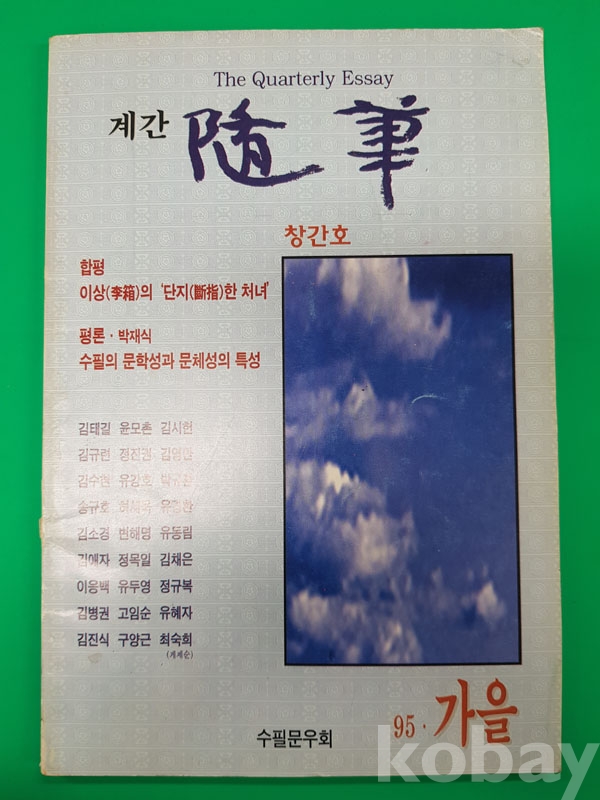 The Quarterly Essay
계간 隨筆
창간호
합평
이상(李箱)의 '단지(斷指)한 처녀'
평론 · 박재식
수필의 문학성과 문체성의 특성
김태길 윤모촌 김시헌
김규련 정진권
김수현 유강호
송규호
김소경 변해명 유동림
김애자 정목일 김채은
이응백 유두영 정규복
김병권 고임순 유혜자
김진식 구양근 최숙희
(게재순)
95 · 가을
수필문우회
kobay